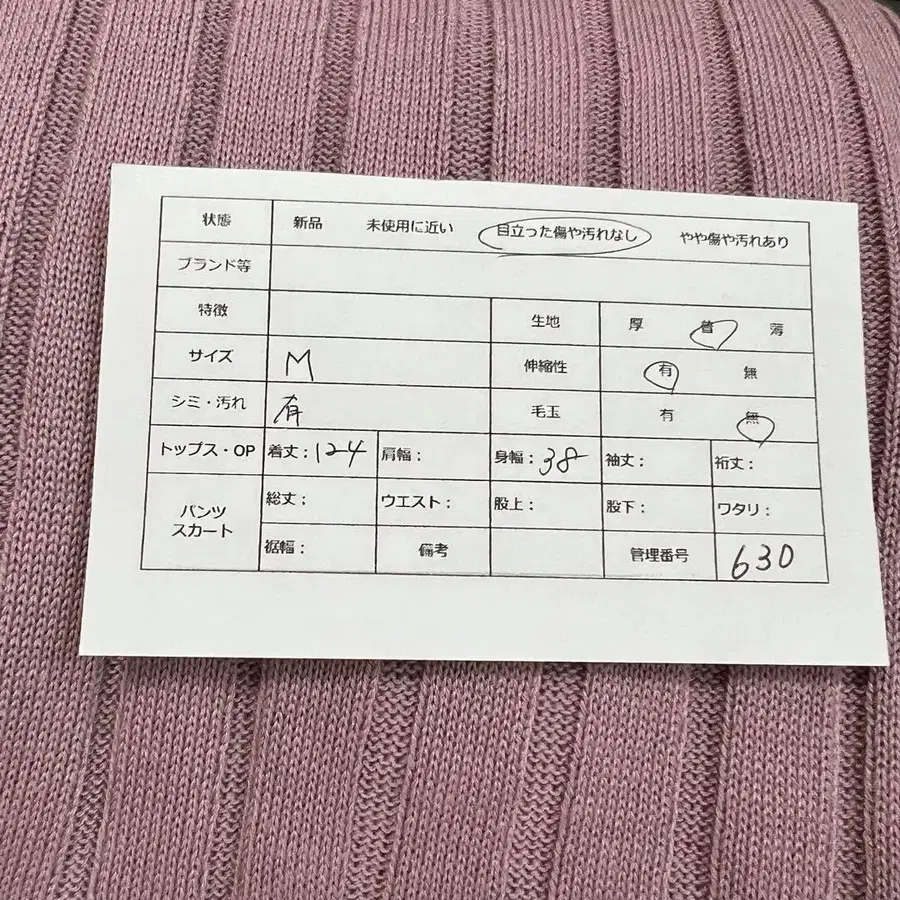 状態 新品 未使用に近い 目立った傷や汚れなし やや傷や汚れあり
ブランド等
特徴 生地 厚 普 薄
サイズ M 伸縮性 有 無
シミ・汚れ 有 毛玉 有 無
トップス・OP 着丈：124 肩幅： 身幅：38 袖丈： 裄丈：
パンツ スカート 総丈： ウエスト： 股上： 股下： ワタリ：
裾幅： 備考 管理番号 630